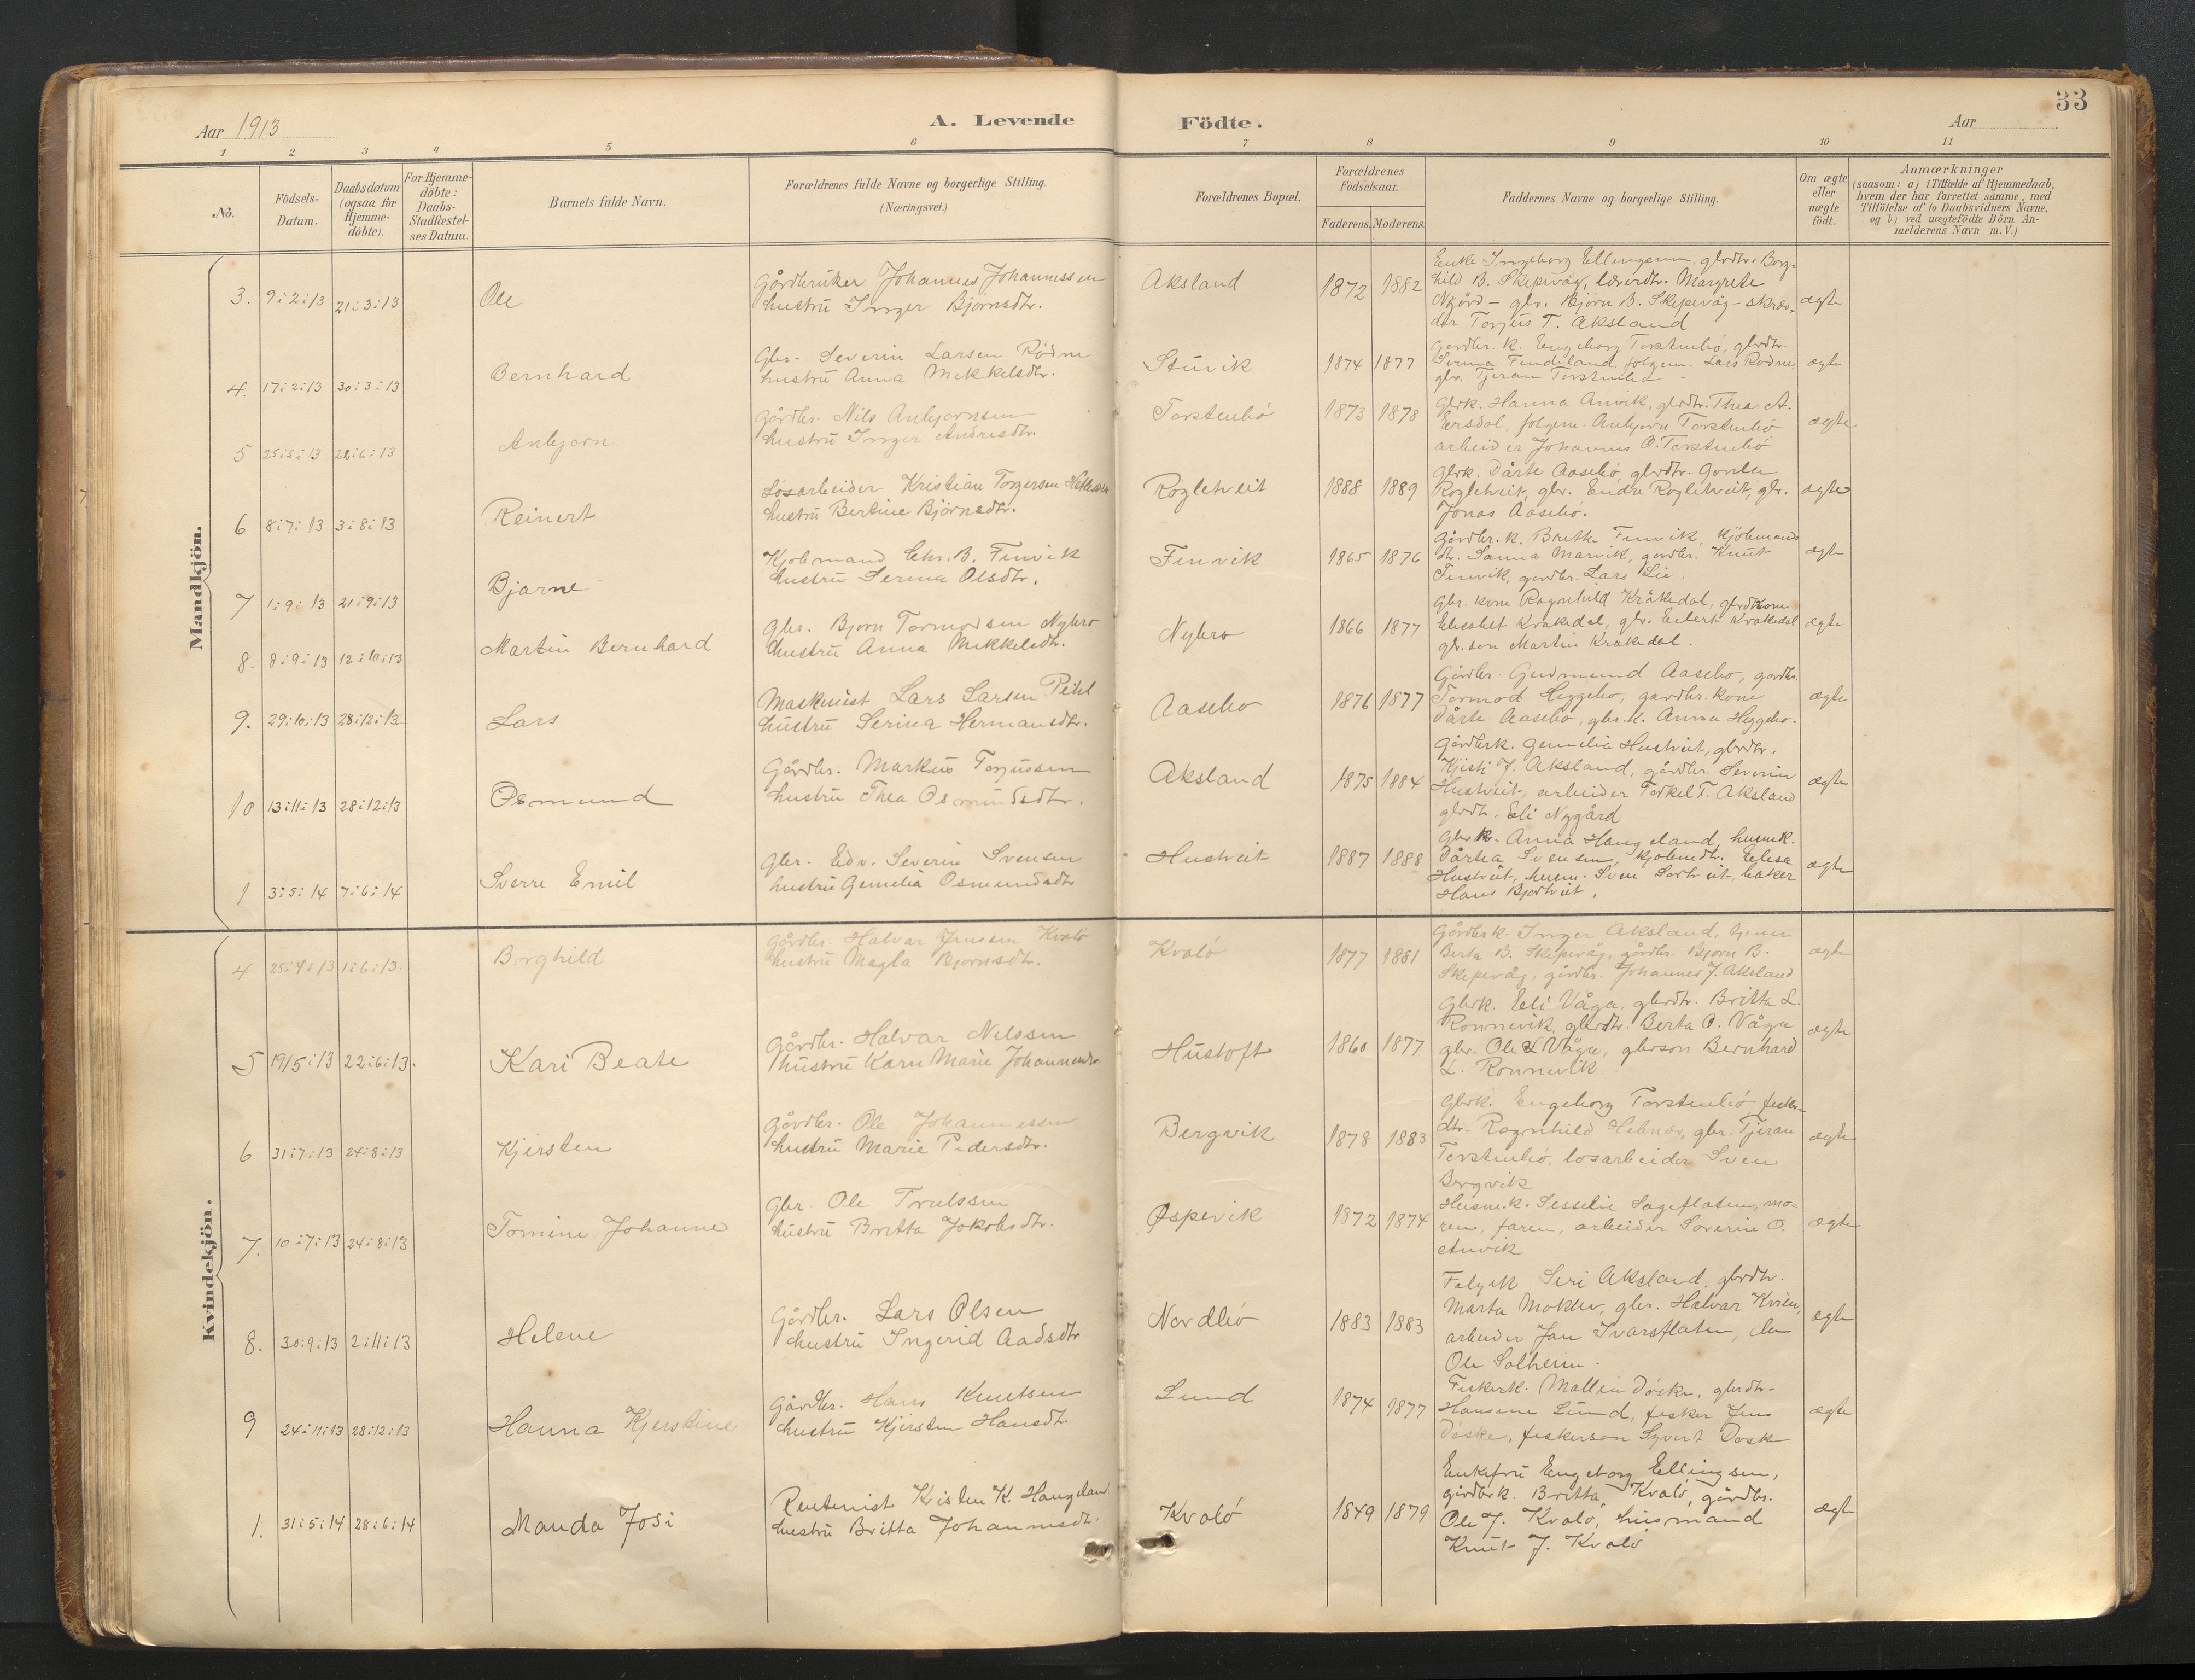 33
Aar 1913
A. Levende Födte.
Aar
1 2 3 4 5 6 7 8 9 10 11
No.
Födsels-
Datum.
Daabsdatum
(ogsaa for
Hjemme-
döbte).
For Hjemme-
döbte:
Daabs-
Stadfæstel-
ses Datum.
Barnets fulde Navn.
Forældrenes fulde Navne og borgerlige Stilling.
(Næringsvei.)
Forældrenes Bopæl.
Forældrenes
Födselsaar.
Faderens. Moderens.
Faddernes Navne og borgerlige Stilling.
Om ægte
eller
uægte
födt.
Anmærkninger
(saasom: a) i Tilfælde af Hjemmedaab,
hvem der har forrettet samme, med
Tilföielse af to Daabsvidners Navne,
og b) ved uægtefödte Börn An-
melderens Navn m. V.)
Mandkjön.
3. 9:2:13 21:3:13
Ole
Gårdbruker Johannes Johannessen
hustru Inger Bjørnsdtr.
Aksland
1872 1882
Enke Ingeborg Ellingsen, glrdtr. Borg-
hild B. Skipevåg, lærerdtr. Margrete
Nygård - glr. Bjørn B. Skipevåg - skræd-
der Torjus T. Aksland
ægte
4. 17:2:13 30:3:13
Bernhard
Gbr. Severin Larsen Rødne
hustru Anna Mikkelsdtr.
Stuvik
1874 1877
Gardbr. k. Engeborg Torstenbø, glrdtr.
Lars Rødne,
glr. Tjeran Torstenbø
ægte
5 25:5:13 22:6:13
Anbjørn
Gårdbr. Nils Anbjørnsen
hustru Inger Andresdtr.
Torstenbø
1873 1878
Glrk. Hanna Anvik, glrdtr. Thea A.
Eersdal, folgem. Anbjørn Torstenbø
arbeider Johannes O. Torstenbø
ægte
6 8:7:13 3:8:13
Reinert
Løsarbeider Kristian Torgersen
hustru Bertine Bjørnsdtr.
Rogletveit
1888 1889
Glrk. Dårte Aasebø, glrdtr.
Rogletveit, glr. Endre Rogletveit, glr.
Jonas Aasebø.
ægte
7 1:9:13 21:9:13
Bjarne
Kjøbmand Chr. B. Finvik
hustru Serina Olsdtr.
Finvik
1865 1876
Gårdbr. k. Britte Finvik, Kjøbmand
dtr. Sanna Marvik, gardbr. Knut
Finvik, gardbr. Lars Lie.
ægte
8. 8:9:13 12:10:13
Martin Bernhard
Gbr. Bjørn Tormodsen Nybro
hustru Anna Mikkelsdtr.
Nybro
1866 1877
Gbr. kone Ragnhild Kråkedal,
Elisabet Kråkedal, glr. Eilert Kråkedal
glr. søn Martin Kråkedal.
ægte
9. 29:10:13 28:12:13
Lars
Maskinist Lars Larsen Pihl
hustru Serina Hermansdtr.
Aasebø
1876 1877
Gårdbr. Gudmund Aasebø, gardbr.
Tormod Heggebø, gardbr. kone
Dårte Aasebø, gbr. k. Anna Heggebø.
ægte
10 13:11:13 28:12:13
Osmund
Gårdbr. Markus Torjussen
hustru Thea Osmundsdtr.
Aksland
1875 1884
Gårdbrk. Gemelia Hustveit, glrdtr.
Kjisti J. Aksland, gårdbr. Severin
Hustveit, arbeider Torkel T. Aksland
glrdtr. Eli Nygård
ægte
1 3:5:14 7:6:14
Sverre Emil
Gbr. Edv. Severin Svensen
hustru Gemelia Osmundsdtr
Hustveit
1887 1888
Gbrk. Anna Haugeland, husmk.
Dårtea Svensen, kjøbmdtr. Elisa
Hustveit, husm. Sven Sørtveit, baker
Hans Bjørtveit.
ægte
Kvindekjön.
4 25:4:13 1:6:13.
Borghild
Gårdbr. Halvar Jenssen Kvalø
hustru Magla Bjørnsdtr.
Kvalø
1877 1881
Gårdbrk. Inger Aksland,
Berta B. Skipevåg, gårdbr. Bjørn B.
Skipevåg, gårdbr. Johannes J. Aksland
ægte
5 19/5:13 22:6:13.
Kari Beate
Gårdbr. Halvar Nilssen
hustru Karn Marie Johannesdtr
Hustoft
1860 1877
Gbrk. Eli Våga, gbrdtr. Britta L.
Rønnevik, gbrdtr. Berta O. Våga
gbr. Ole Våga, gbrsøn Bernhard
L. Rønnevik
ægte
6 31:7:13 24:8:13
Kjirsten
Gårdbr. Ole Johannessen
hustru Marie Pedersdtr.
Bergvik
1878 1883
Gbrk. Engeborg Torstenbø, fisker-
dtr. Ragnhild Helnæs, gbr. Tjeran
Torstenbø, løsarbeider Sven
Bergvik
ægte
7. 10:7:13 24:8:13
Tomine Johanne
Gbr. Ole Trulssen
hustru Britta Jokobsdtr.
Øspevik
1872 1874
Husm.k. Sesselie Sageflaten, mo-
ren, faren, arbeider Søverin O.
Anvik
ægte
8. 30:9:13 2:11:13
Helene
Gårdbr. Lars Olsen
hustru Ingerid Aadsdtr
Nordbø
1883 1883
Siri Aksland, gbrdtr.
Marta Moklev, gbr. Halvar Kvien,
arbeider Jan Ivarsflaten,
Ole Solheim.
ægte
9 24:11:13 28:12:13
Hanna Kjerstine
Gårdbr. Hans Knutsen
hustru Kjirsten Hansdtr
Lund
1874 1877
Fiskerk. Mallen Døske, gbrdtr.
Hansine Lund, fisker Jens
Døske, fiskersøn Syvert Døsk
ægte
1. 31:5:14 28:6:14
Manda Josi
Rentenist Kristen K. Haugeland
hustru Britta Johannesdtr.
Kvalø
1849 1879
Enkefru Engeborg Ellingsen,
gårdbrk. Britta Kvalø, gårdbr.
Ole J. Kvalø, husmand
Knut J. Kvalø
ægte